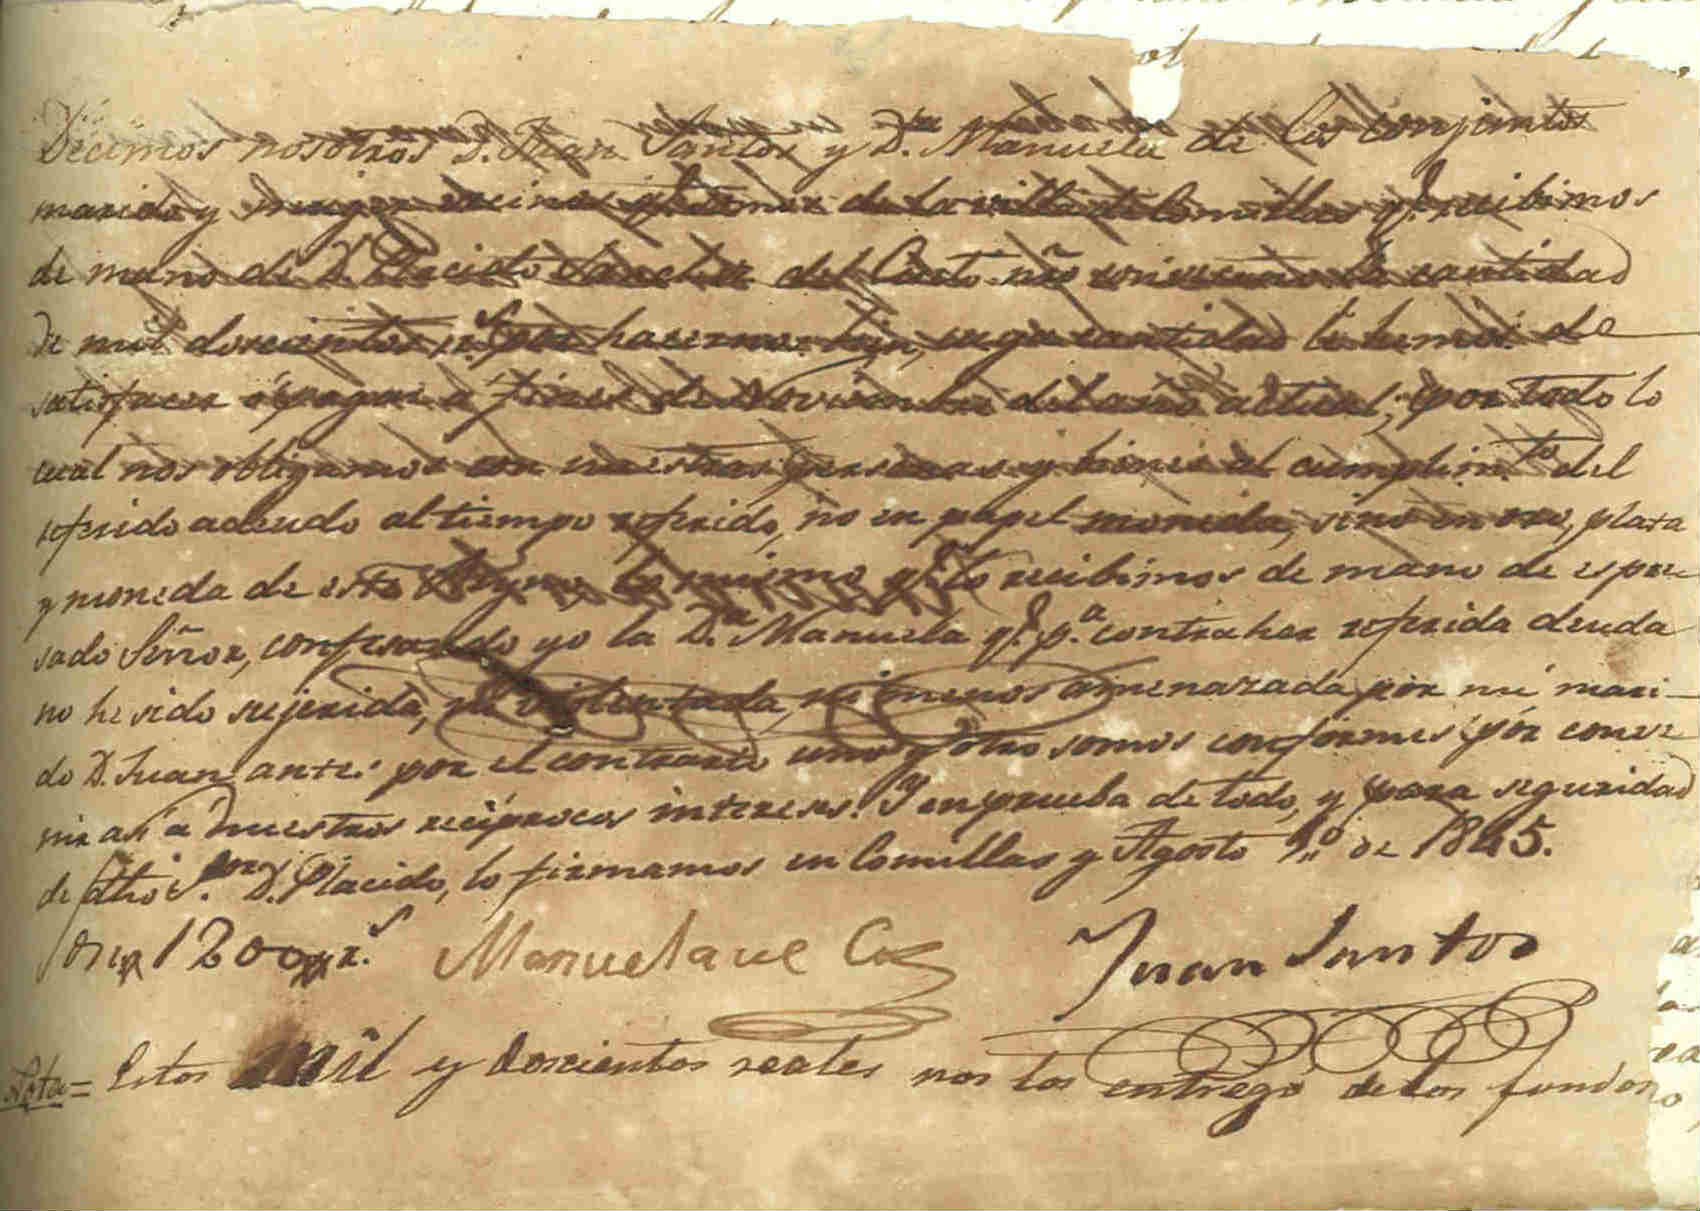 Decimos nosotros D. Juan Santos y D.ña Manuela de Cos conjuntos
marido y muger vecinos de la villa de Comillas q.e recibimos
de mano de D. Placido Sanchez del Cueto nño la cantidad
de mil doscientos r.s por hacernos bien, cuya cantidad le hemos de
satisfacer ó pagar á fines de Noviembre del año actual, por todo lo
cual nos obligamos con nuestras personas y bienes al cumplim.to del
referido adeudo al tiempo referido, no en papel moneda, sino en oro, plata
y moneda de este Reyno lo mismo q.e lo recibimos de mano de espre-
sado Señor, confesando yo la D.a Manuela q.e p.a contraher referida deuda
no he sido sujerida, ni violentada, ni menos amenazada por mi mari-
do D. Juan antes por el contrario uno y otro somos conformes por conve-
nir asi á nuestros recíprocos intereses. Y en prueba de todo, y para seguridad
de dho S.or D. Placido, lo firmamos en Comillas y Agosto 1.o de 1845.
Son 1200 r.s Manuela de Cos Juan Santos
Nota = Estos mil y doscientos reales nos los entregó de los fondos